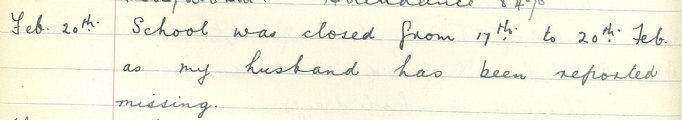 Attendance 84%
Feb. 20th. School was closed from 17th. to 20th. Feb.
as my husband has been reported
missing.